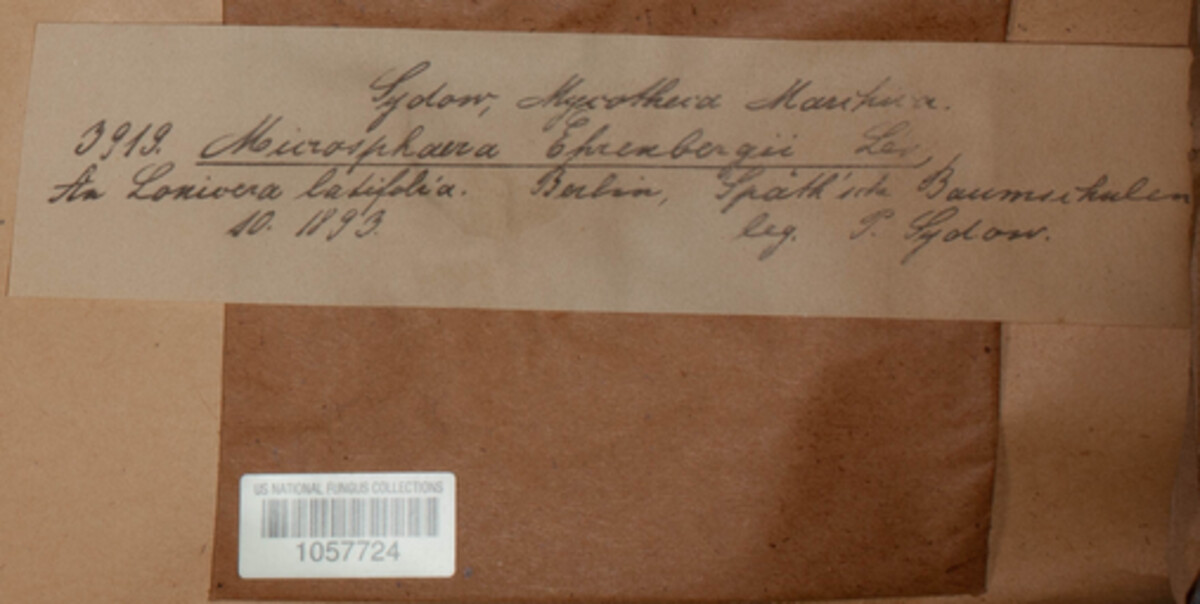 Sydow, Mycotheca Marchica.
3919. Microsphaera Ehrenbergii Lev,
An Lonicera latifolia. Berlin, Späth'sche Baumschulen
10. 1893. leg. P. Sydow.
US NATIONAL FUNGUS COLLECTIONS
1057724